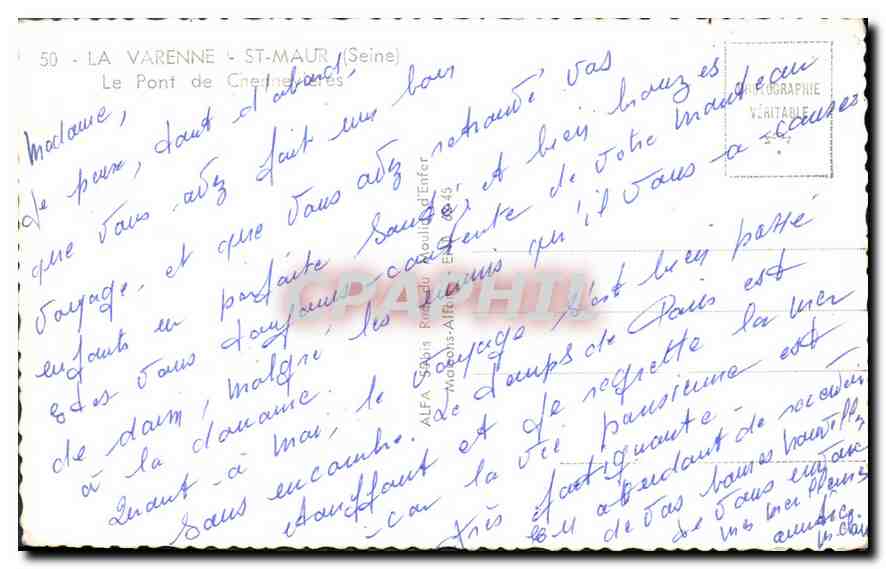 50 - LA VARENNE - ST-MAUR (Seine)
Le Pont de Chennevières
PHOTOGRAPHIE
VÉRITABLE
Madame,
Je peux, tout d'abord,
que vous avez fait un bon
voyage, et que vous avez retrouvé vos
enfants en parfaite santé, et bien bronzés
Etes vous toujours contente de votre manteau
de daim, malgré les ennuis qu'il vous a causés
à la douane.
Quant à moi, le voyage s'est bien passé
sans encombre. Le temps de Paris est
étouffant et je regrette la mer
car la vie parisienne est
très fatiguante.
En attendant de recevoir
de vos bonnes nouvelles
je vous envoie
mes meilleures
amitiés.
ALFA 5 bis Rue du Moulin d'Enfer
CPAPHIL